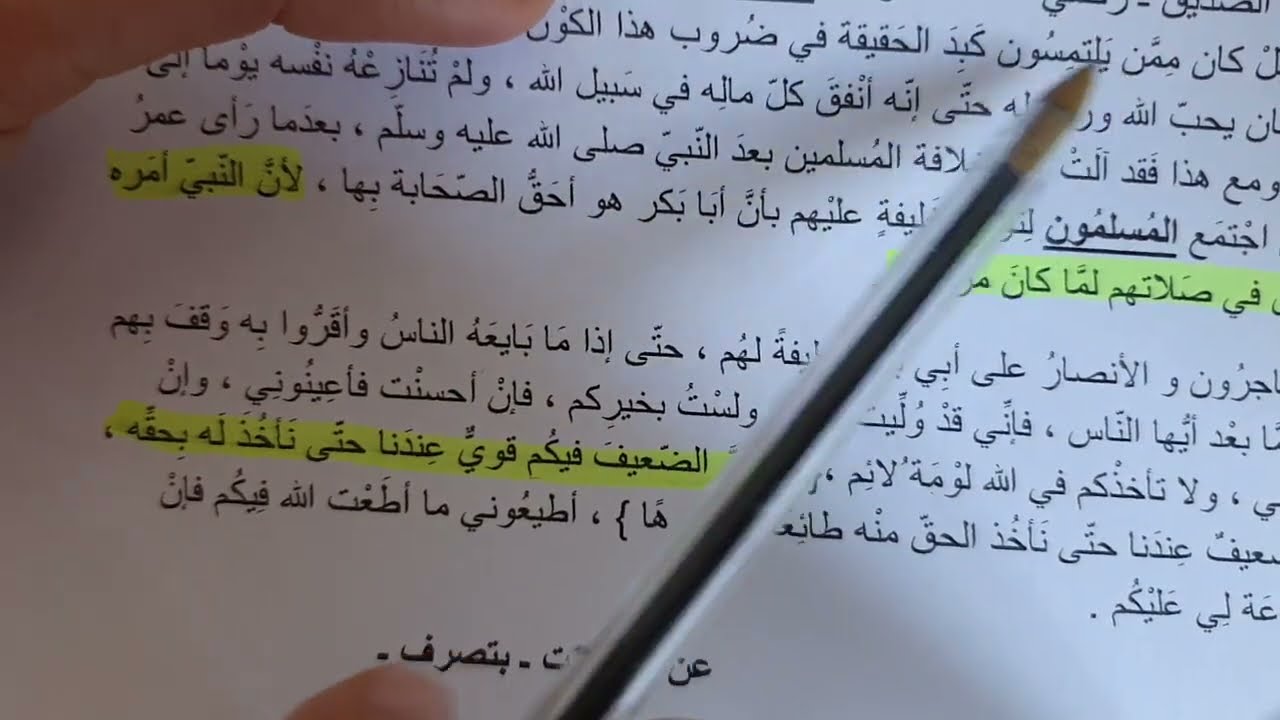 الصديق ـ
كان مِمَّن يَلتمِسُون كَبِدَ الحَقيقة في ضُروب هذا الكوْن
يحبّ الله حتَّى إنّه أنْفقَ كلّ مالِه في سَبيل الله ، ولمْ تُنَازِعْهُ نفْسه يوْما إلى
ومع هذا فَقد آلَتْ المُسلمين بعدَ النّبيّ صلى الله عليه وسلّم ، بعدَما رَأى عمرُ
اجْتمَع المُسلمُون عليْهم بأنَّ أبَا بَكر هو أحَقُّ الصّحَابة بِها ، لأنَّ النّبيّ أمَره
في صَلاتهم لمَّا كانَ
و الأنصارُ على أبِي لهُم ، حتّى إذا مَا بَايَعَهُ الناسُ وأقَرُّوا بِه وَقفَ بِهم
بعْد أيُّها النّاس ، فإنِّي قدْ وُلِّيت ولسْتُ بخيرِكم ، فإنْ أحسنْت فأعِينُوني ، وإنْ
، ولا تأخذْكم في الله لوْمَة ُلائِم ، الضّعيفَ فيكُم قويٌّ عِندَنا حتَّى نَأخُذَ لَه بِحقِّه ،
عِندَنا حتّى نَأخُذ الحقّ منْه هًا } ، أطيعُوني ما أطَعْت الله فِيكُم فإنْ
لِي عَليْكُم .
عن ـ بتصرف ـ